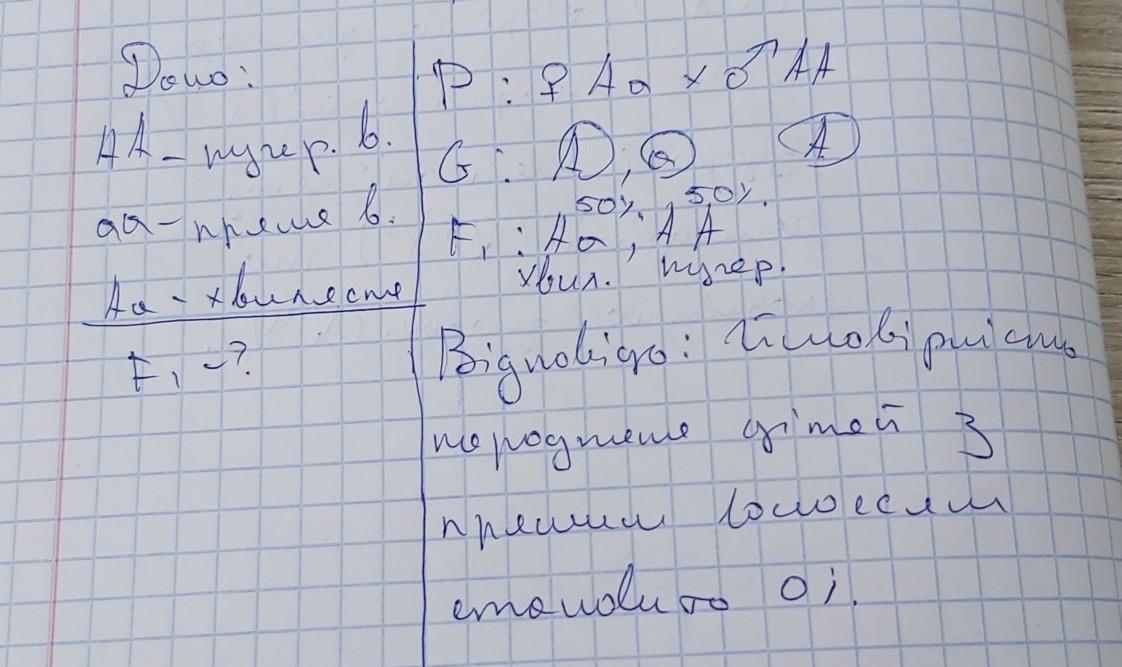 Дано:
АА - кучер. в.
аа - пряме в.
Аа - хвилясте
F₁ - ?
P : ♀ Aa x ♂ AA
G : A, a A
50%. 50%.
F₁ : Aa, AA
хвил. кучер.
Відповідь: Ймовірність
народження дітей з
прямим волоссям
становить 0%.